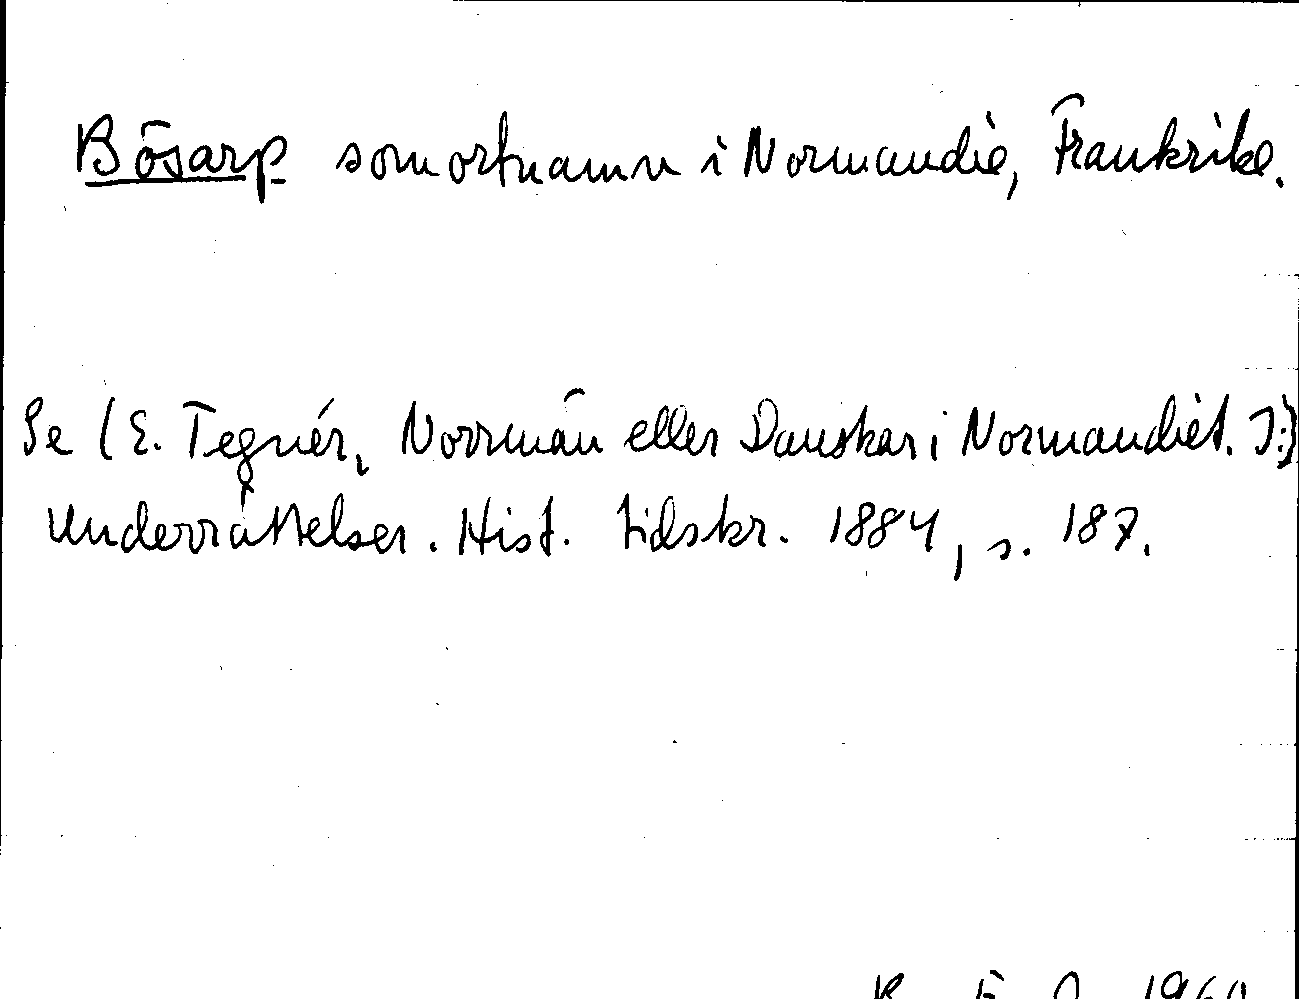 Bösarp som ortnamn i Normandie, Frankrike.
Se (E. Tegnér, Norrmän eller Danskar i Normandiet. I:)
Underrättelser. Hist. tidskr. 1884, s. 187.